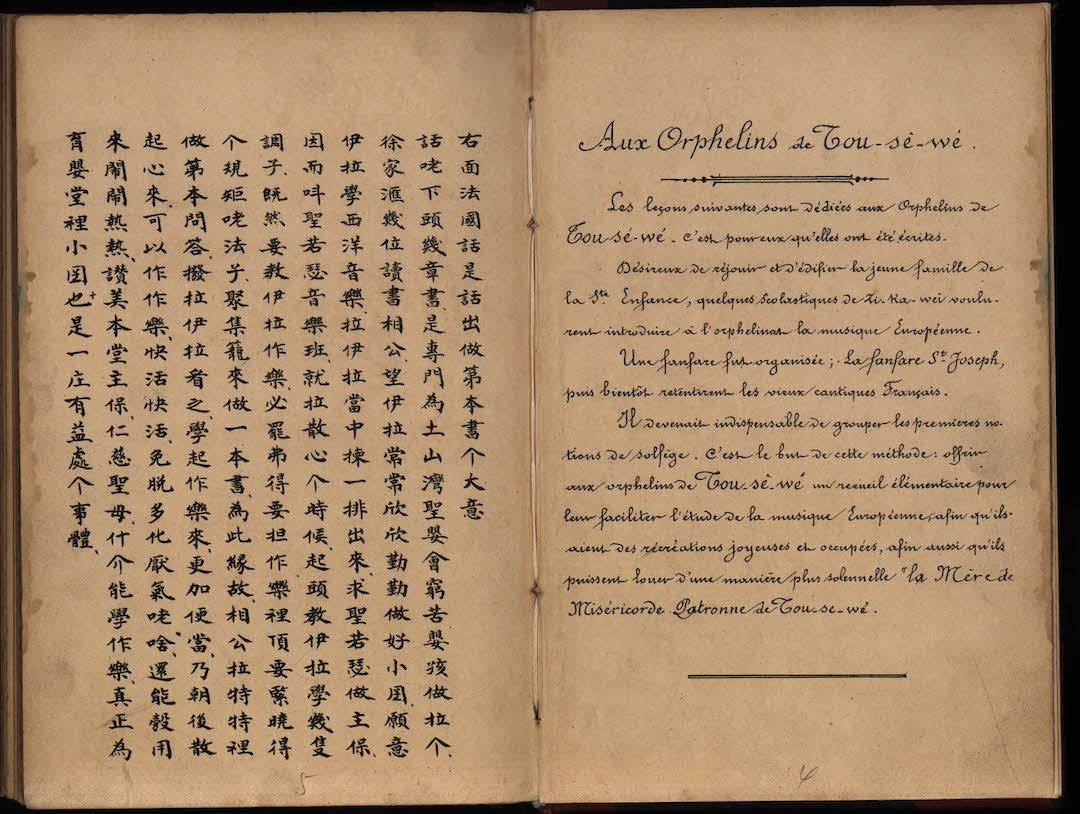 Aux Orphelins de Tou-sè-wé.
Les leçons suivantes sont dédiées aux Orphelins de
Tou-sè-wé. C'est pour eux qu'elles ont été écrites.
Désireux de réjouir et d'édifier la jeune famille de
la Ste Enfance, quelques Scolastiques de Zi-Ka-wei voulu-
rent introduire à l'orphelinat la musique Européenne.
Une fanfare fut organisée; La fanfare St Joseph,
puis bientôt retentirent les vieux cantiques Français.
Il devenait indispensable de grouper les premières no-
tions de solfège. C'est le but de cette méthode: offrir
aux orphelins de Tou-sè-wé un recueil élémentaire pour
leur faciliter l'étude de la musique Européenne, afin qu'ils
aient des récréations joyeuses et occupées, afin aussi qu'ils
puissent louer d'une manière plus solennelle la Mère de
Miséricorde Patronne de Tou-se-wé.
4
右面法國話是話出做第本書个大意
話咾下頭幾章書是專門為土山灣聖嬰會窮苦嬰孩做拉个、
徐家滙幾位讀書相公望伊拉常常欣欣勤勤做好小囝願意
伊拉學西洋音樂、拉伊拉當中揀一排出來、求聖若瑟做主保、
因而呌聖若瑟音樂班、就拉散心个時候、起頭教伊拉學幾隻
調子、既然要教伊拉作樂、必罷弗得要担作樂裡頂要緊曉得
个規矩咾法子、聚集籠來做一本書、為此緣故、相公拉特特裡
做第本問答、撥拉伊拉看之、學起作樂來、更加便當、乃朝後散
起心來、可以作作樂、快活快活、免脱多化厭氣咾啥、還能彀用
來鬧鬧熱熱、讃美本堂主保、仁慈聖母、什介能學作樂、真正為
育嬰堂裡小囝也是一庄有益處个事體、
5